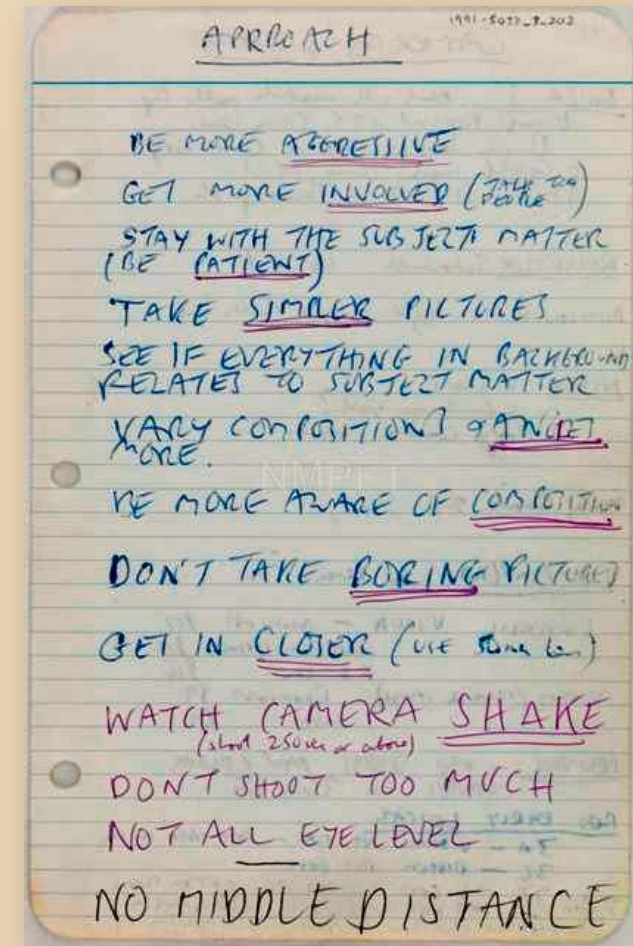 1991-5037_9_202
APPROACH
BE MORE AGGRESSIVE
GET MORE INVOLVED (TALK TOO PEOPLE)
STAY WITH THE SUBJECT MATTER
(BE PATIENT)
TAKE SIMPLER PICTURES
SEE IF EVERYTHING IN BACKGROUND
RELATES TO SUBJECT MATTER
VARY COMPOSITIONS & ANGLES
MORE.
NMPFT
BE MORE AWARE OF COMPOSITION
DON'T TAKE BORING PICTURES
GET IN CLOSER (USE 50mm Lens)
WATCH CAMERA SHAKE
(shoot 250sec or above)
DON'T SHOOT TOO MUCH
NOT ALL EYE LEVEL
NO MIDDLE DISTANCE